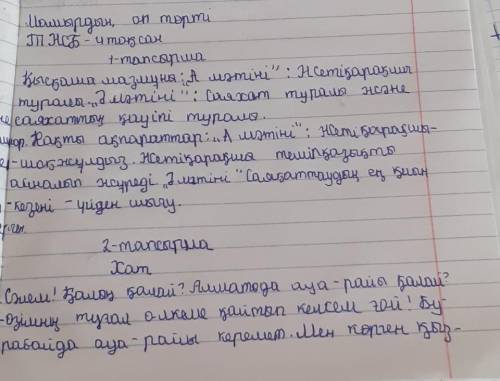 Мамырдың он төрті
ТЖБ - 4 тоқсан
1-тапсырма
Қысқаша мазмұны: „А мәтіні": Жетіқарақшы
туралы. „Ә мәтіні": Саяхат туралы және
саяхаттың қауіпі туралы.
Нақты ақпараттар: „А мәтіні": Жетіқарақшы-
шақжұлдыз. Жетіқарақшы темірқазықты
айналып жүреді „Ә мәтіні" Саяхаттаудың ең қиын
кезеңі - үйден шығу.
2-тапсырма
Хат
Сәлем! Қалың қалай? Алматода ауа-райы қалай?
Өзімнің туған өлкеме қайтып келсем ғой! Бу-
рабайда ауа-райы керемет. Мен көрген қыз-